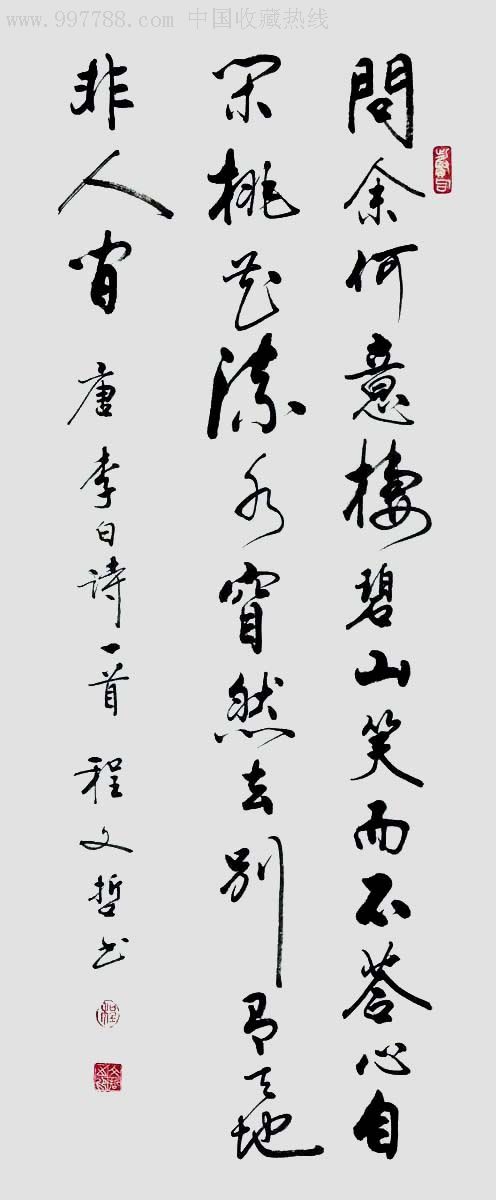 www.997788.com 中国收藏热线
問余何意棲碧山笑而不荅心自
闲桃花流水窅然去别有天地
非人间 唐李白诗一首 程文哲书